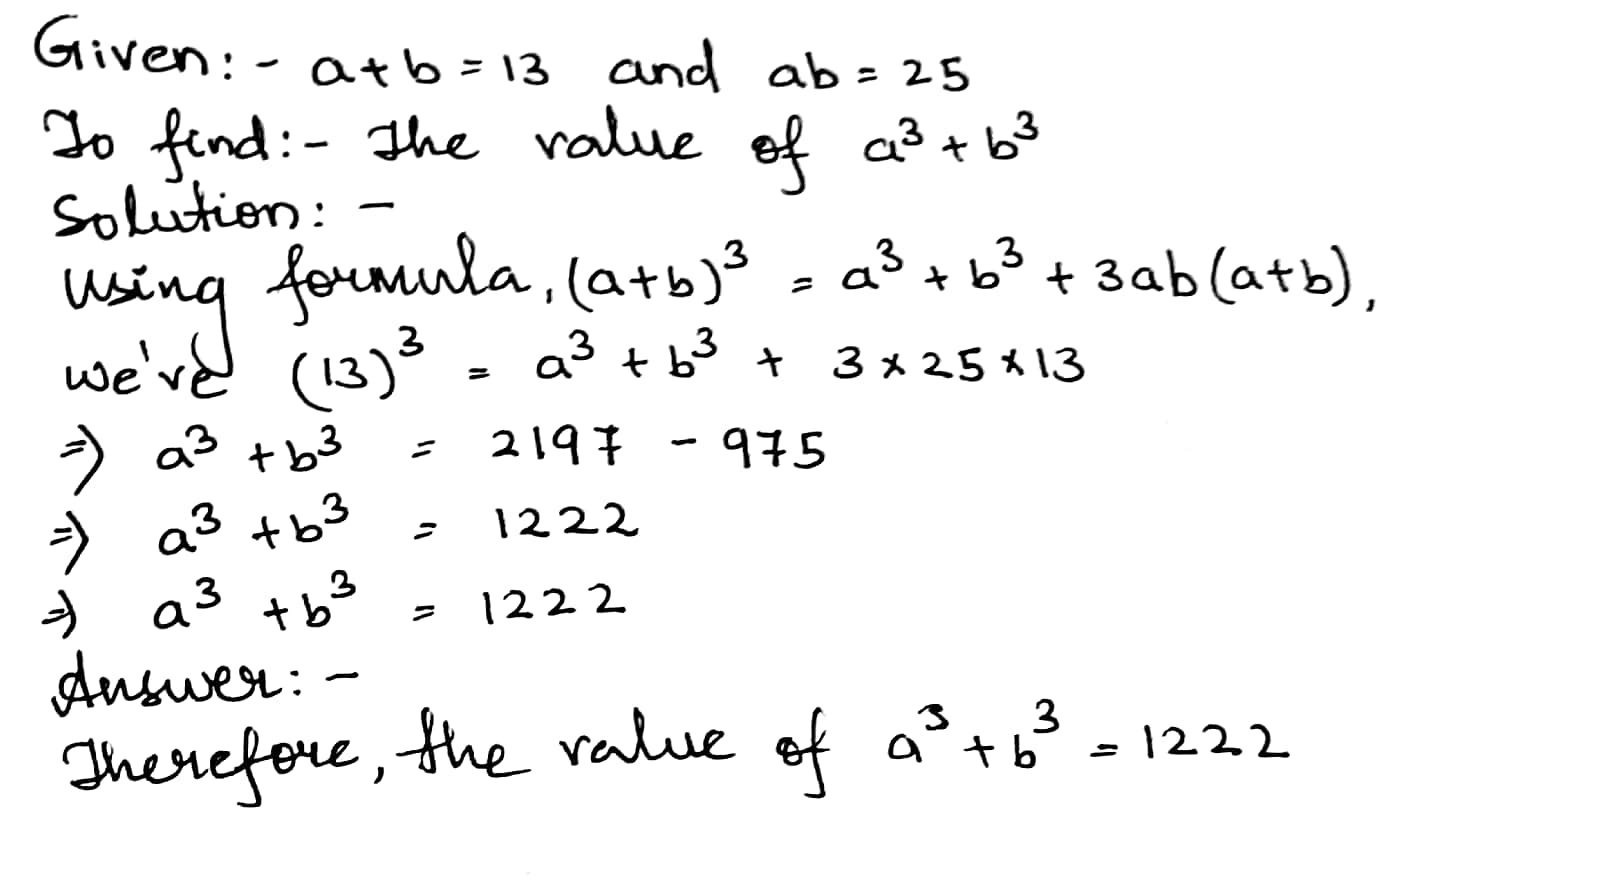 Given:- a+b=13 and ab=25
To find:- The value of a³+b³
Solution:-
Using formula, (a+b)³ = a³+b³+3ab(a+b),
we've (13)³ = a³+b³ + 3×25×13
⇒ a³+b³ = 2197 - 975
⇒ a³+b³ = 1222
⇒ a³+b³ = 1222
Answer:-
Therefore, the value of a³+b³ = 1222